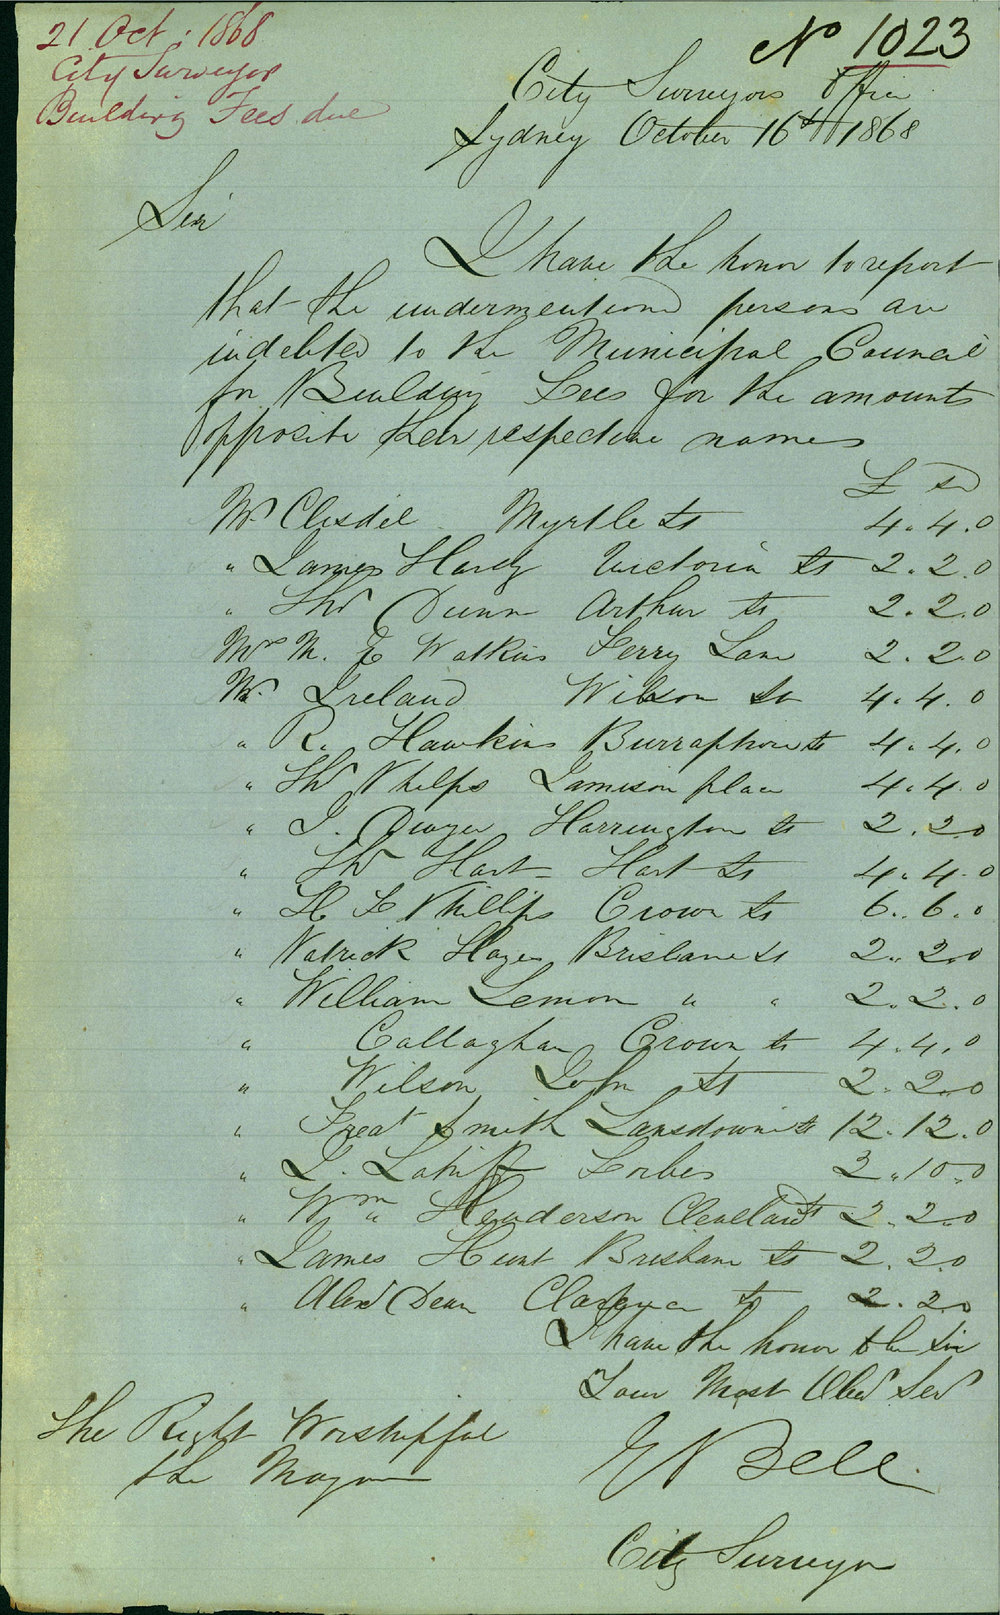 21 Oct. 1868
City Surveyor
Building Fees due
No 1023
City Surveyors Office
Sydney October 16th 1868
Sir
I have the honor to report
that the undermentioned persons are
indebted to the Municipal Council
for Building Fees for the amounts
opposite their respective names
£ s d
Mr Clisdel Myrtle St 4.4.0
" James Hardy Victoria St 2.2.0
" Thos Dunn Arthur St 2.2.0
Mrs M. E Watkins Ferry Lane 2.2.0
Mr Ireland Wilson St 4.4.0
" R. Hawkins Burraphore St 4.4.0
" Thos Phelps Jamison place 4.4.0
" J. Dwyer Harrington St 2.2.0
" Thos Hart Hart St 4.4.0
" H F Phillips Crown St 6.6.0
" Patrick Hayes Brisbane St 2.2.0
" William Lemon " " 2.2.0
" Callaghan Crown St 4.4.0
" Wilson John St 2.2.0
" Treat Smith Lansdowne St 12.12.0
" J. Forbes 2.10.0
" Wm Henderson Cleveland St 2.2.0
" James Hunt Brisbane St 2.2.0
" Alexd Dean St 2.2.0
I have the honor to be Sir
Your Most Obed Serv
The Right Worshipful
the Mayor
E Bell
City Surveyor